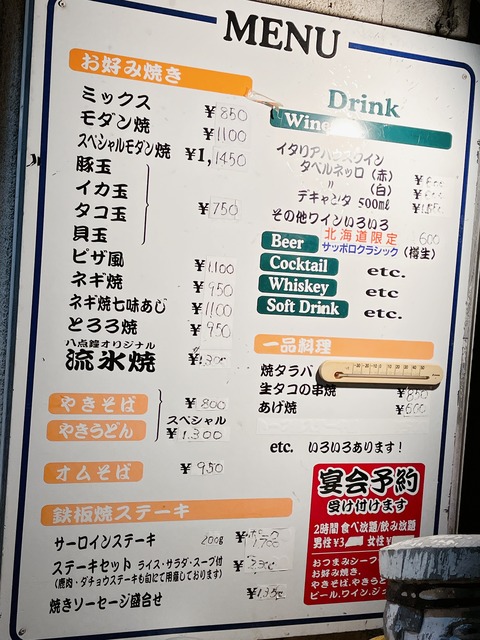 MENU
お好み焼き
ミックス ¥850
モダン焼 ¥1100
スペシャルモダン焼 ¥1,450
豚玉
イカ玉
タコ玉
貝玉
¥750
ピザ風 ¥1,100
ネギ焼 ¥950
ネギ焼七味あじ ¥1100
とろろ焼 ¥950
八点鐘オリジナル
流氷焼
やきそば ¥800
やきうどん スペシャル ¥1,300
オムそば ¥950
鉄板焼ステーキ
サーロインステーキ 200g
ステーキセット ライス・サラダ・スープ付
(鹿肉・ダチョウステーキも旬にて用意しております)
焼きソーセージ盛合せ
Drink
Wine
イタリアハウスワイン
タベルネッロ (赤)
〃 (白)
デキャンタ 500ml
その他ワインいろいろ
Beer 北海道限定 600
サッポロクラシック (樽生)
Cocktail etc.
Whiskey etc
Soft Drink etc.
一品料理
焼タラバ
生タコの串焼 ¥850
あげ焼 ¥600
etc. いろいろあります!
宴会予約
受け付けます
2時間 食べ放題/飲み放題
男性 ¥3 女性
おつまみシーフ
お好み焼き.
やきそば.やきうど
ビール.ワイン.ジュ